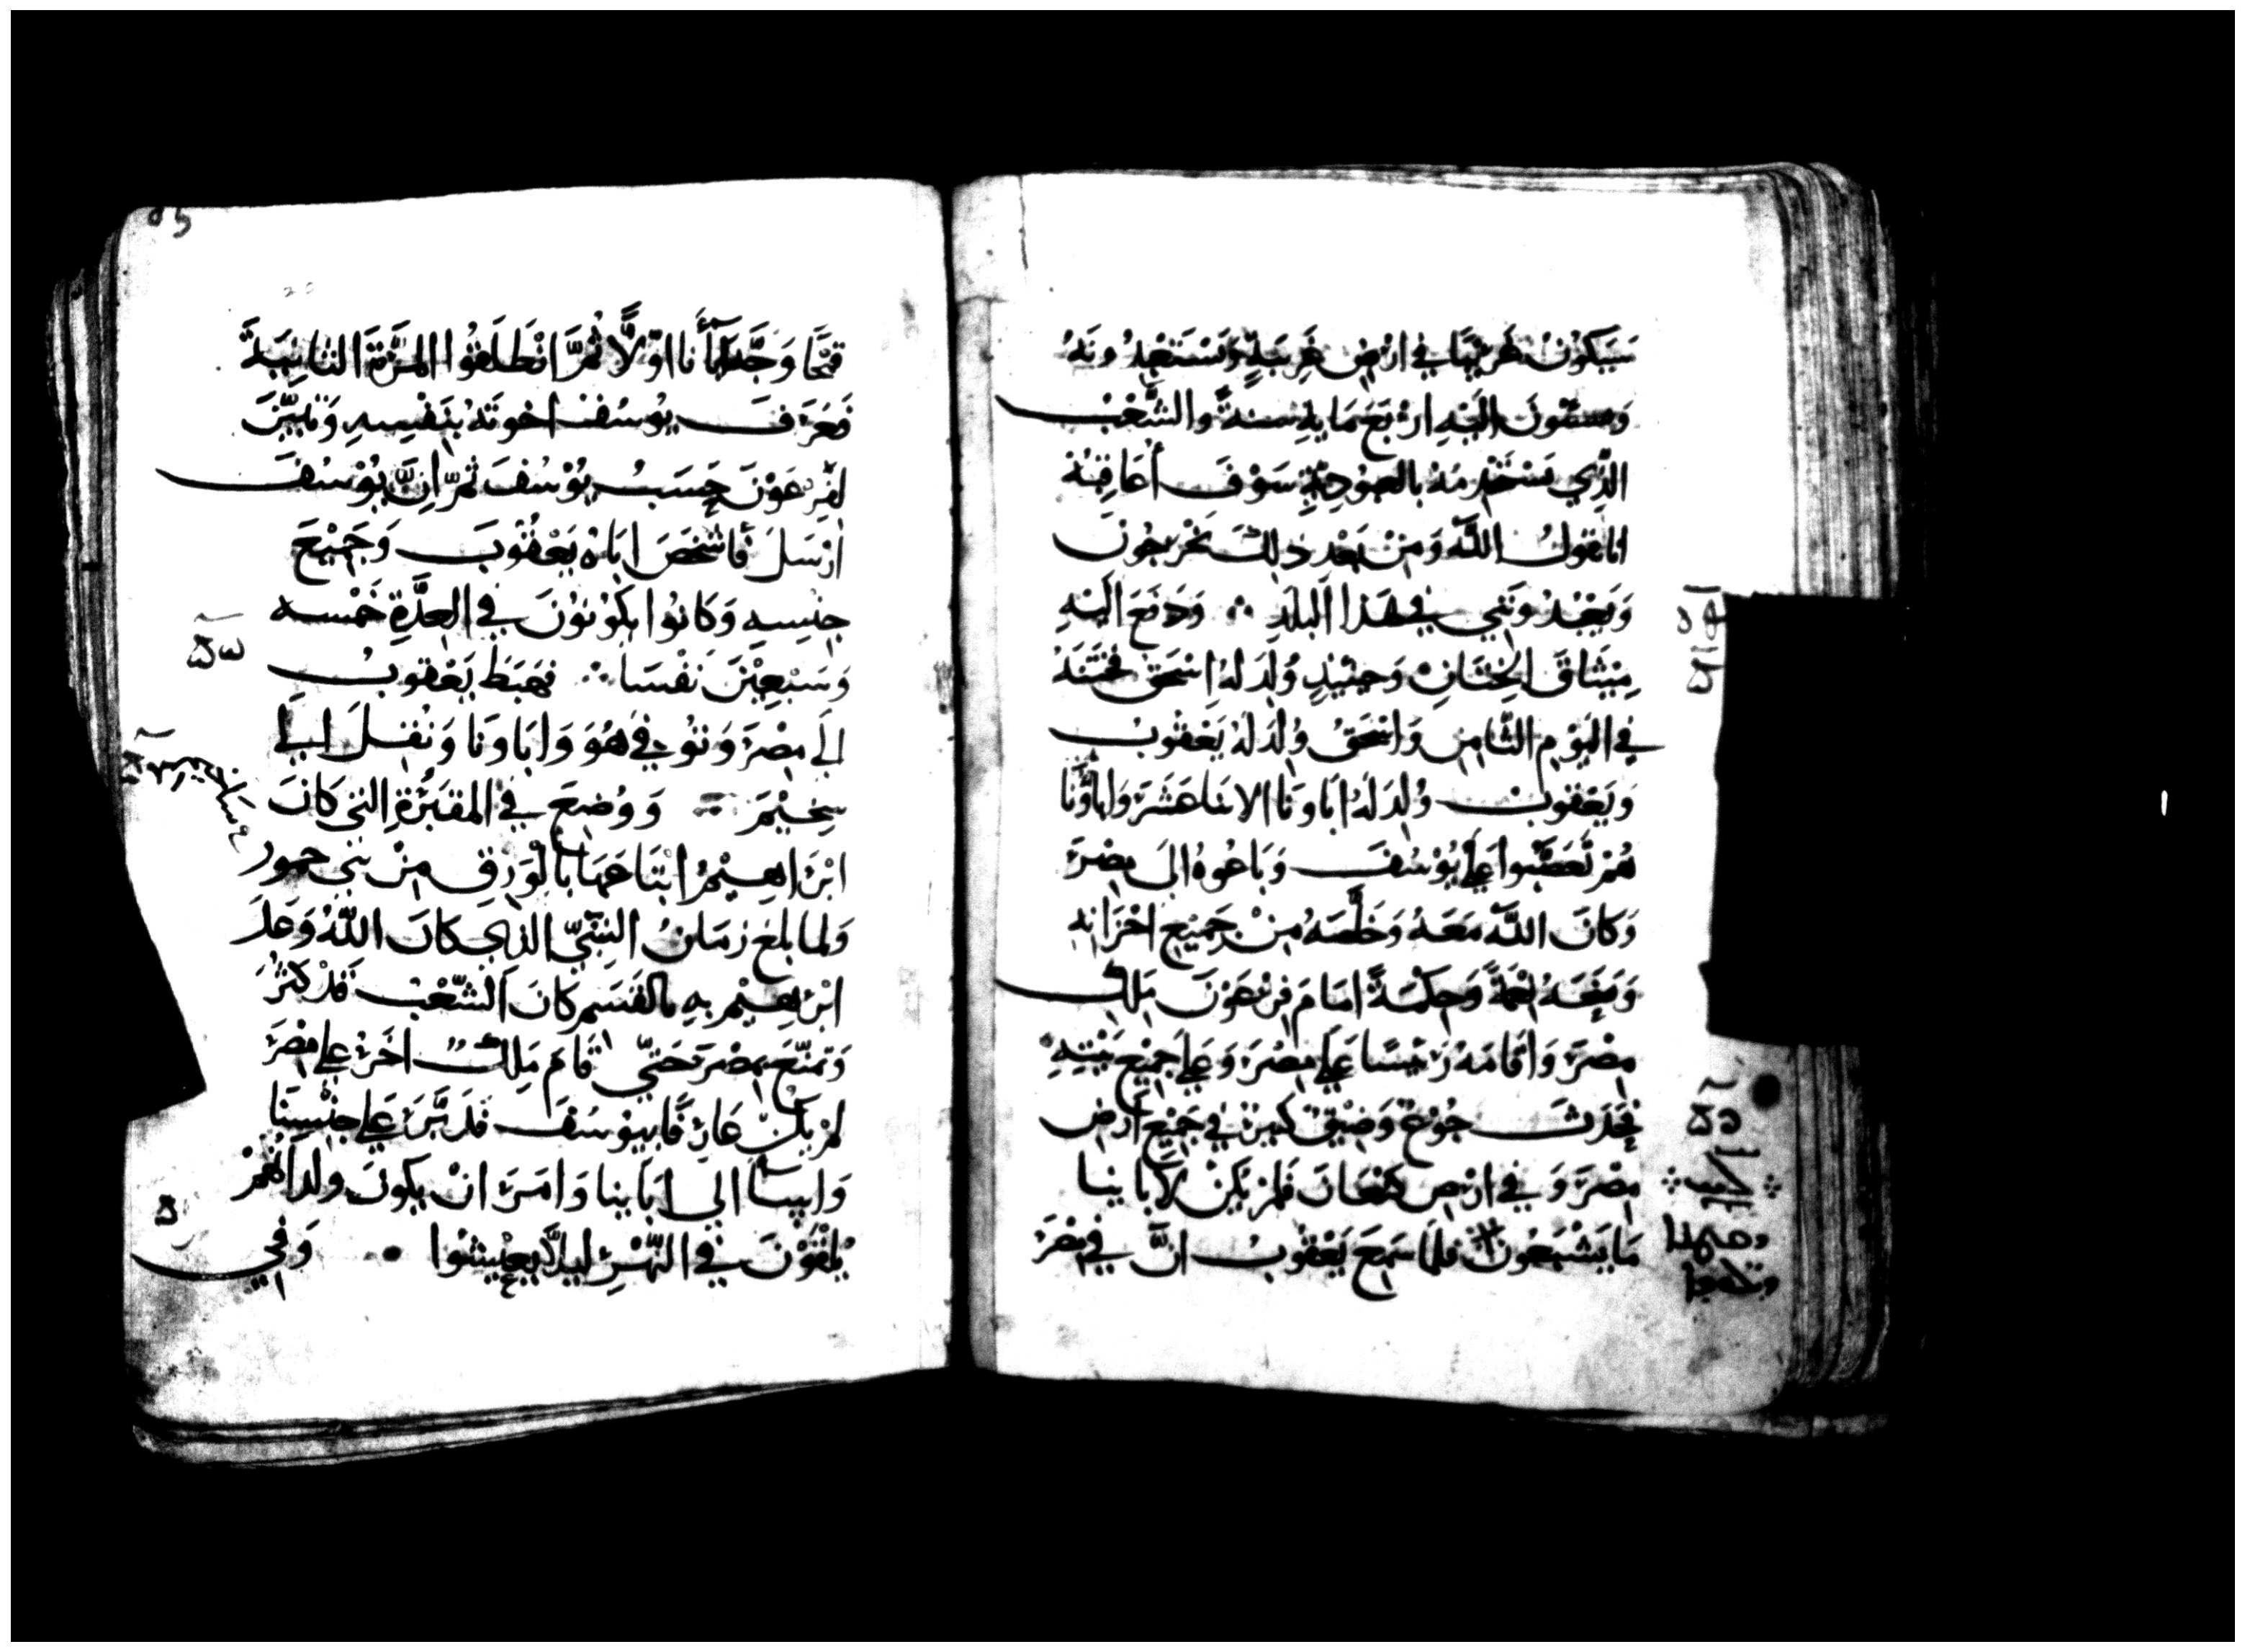 سَيَكُونُ غَرِيبًا في ارْضٍ غَرِيبَةٍ وَيَسْتَعْبِدُونَهُ
وَيسيُّونَ الَيْهِ ارْبَعَمَايةِ سنةً والشَّعْبُ
الَّذِي يَسْتَخْدِمَهُ بالعبُودِيَّةِ سَوْفَ أُعَاقِبُهُ
انا يَقولُ اللَّه وَمِنْ بَعْدِ ذلِكَ يَخْرجُونَ
وَيَعْبُدُونَنِي في هَذا الَبلَدِ ∴ وَدَفَعَ الَيْهِ
مِيْثَاقَ الخِتَانِ وَحِيْنَيذٍ وُلِدَ لهُ اسْحَق فختَنَهُ
في اليَوْمِ الثَّامِن وَاسْحَقُ وُلِدَ لهُ يَعْقُوبُ
وَيَعْقوبُ وُلِدَ لهُ ابَاونَا الاثنا عَشَرَ وَاباؤُنَا
هُمْ تَعَصَّبُوا عَلَى يُوْسُفَ وَبَاعُوهُ الىَ مِصْرَ
وَكانَ اللَّه مَعَهُ وَخَلَّصَهُ مِنْ جَمِيْعِ احْزَانِهِ
وَمَنَحَهُ نِعْمَةً وَحِكْمَةً امَامَ فِرْعَوْنَ مَلِكِ
مِصْرَ وَاقَامَهُ رَئيسًا عَلي مِصْرَ وَعَلي جَمِيْعِ بَيْتِهِ
فحَدَثَ جُوْعٌ وَضِيْقٌ كَبيرٌ في جَمِيْعِ ارْضِ
مِصْرَ وَفي ارْضِ كَنْعَانَ فَلمْ يَكنْ لابَاينا
مَا يَشْبَعُونَ فلمَا سَمِعَ يَعْقُوبُ انَّ في مِصْرَ
قمْحًا وَجَّهَ ابَأنَا اوّلًا ثُمَّ انْطَلَقُوا المَرَّةَ الثانِيَةَ
فعَرَّفَ يُوسُفُ اخوتَهُ بنَفْسِهِ وَتبَيَّنَ
لفِرْعَوْنَ حَسَبُ يُوْسُفَ ثمّ انَّ يُوْسُفَ
ارْسَلَ فأشْخَصَ ابَاهُ يَعْقُوبَ وَجَمِيْعَ
جنسِهِ وَكَانُوا يكُونوُنَ في العِدَّةِ خَمْسه
وَسَبْعِيْنَ نفْسَا ∴ فهَبَطَ يَعْقوبُ
الَى مِصْرَ وَتوُفيَ هُوَ وَابَاونَا وَنُقِلَ الَى
سِخيْمَ وَوُضِعَ في المقبَرَةِ التي كَانَ
ابْرَاهِيْمُ ابْتَاعَهَا بالْوَرِقِ مِنْ بَني حمور
وَلما بلغَ زمَانُ الشَّيّ الذي كانَ اللَّهُ وَعَدَ
ابْرهِيْم بهِ بالقَسَمِ كَانَ الشَّعْبُ قَدْ كثُرَ
وَتمنّعَ بمِصْرَ حَتّي قَامَ مَلِكٌ اخَرُ عَلى مِصْرَ
لمْ يَكنْ عَارفًا بيُوْسُفَ فَدَبَّرَ عَلي جِنْسِنَا
وَاسَا الي ابَاينا وَامَرَ انْ يكونَ ولدانُهُمْ
يُلْقَوْنَ في النّهْرِ ليلاَّ يعِيْشُوا • وَفي